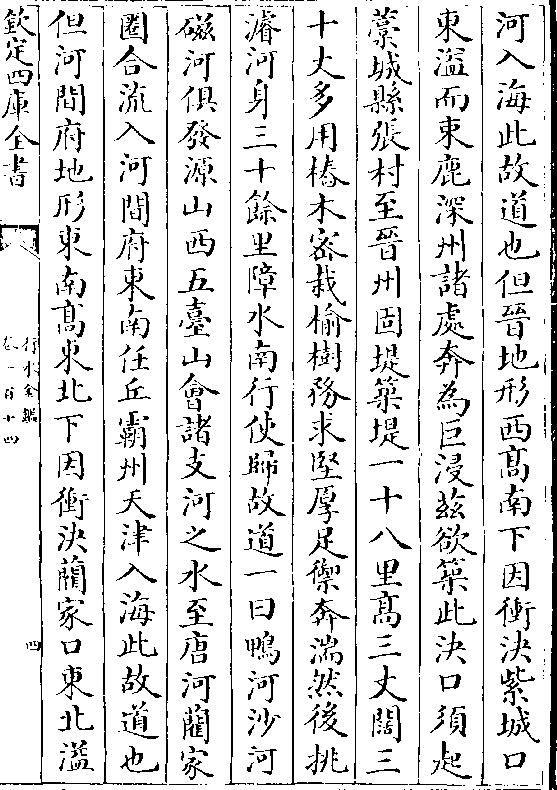 河入海此故道也但晉地形西髙南下因衝決紫城口
東溢而東鹿深州諸處奔為巨浸茲欲築此決口須起
藁城縣張村至晉州固堤築堤一十八里髙三丈闊三
十丈多用樁木宻栽榆樹務求堅厚足禦奔湍然後挑
濬河身三十餘里障水南行使歸故道一曰鴨河沙河
磁河俱發源山西五臺山會諸支河之水至唐河藺家
圏合流入河間府東南任丘霸州天津入海此故道也
但河間府地形東南髙東北下因衝決藺家口東北溢
欽定四庫全書
行水金鑑
卷一百十四
四